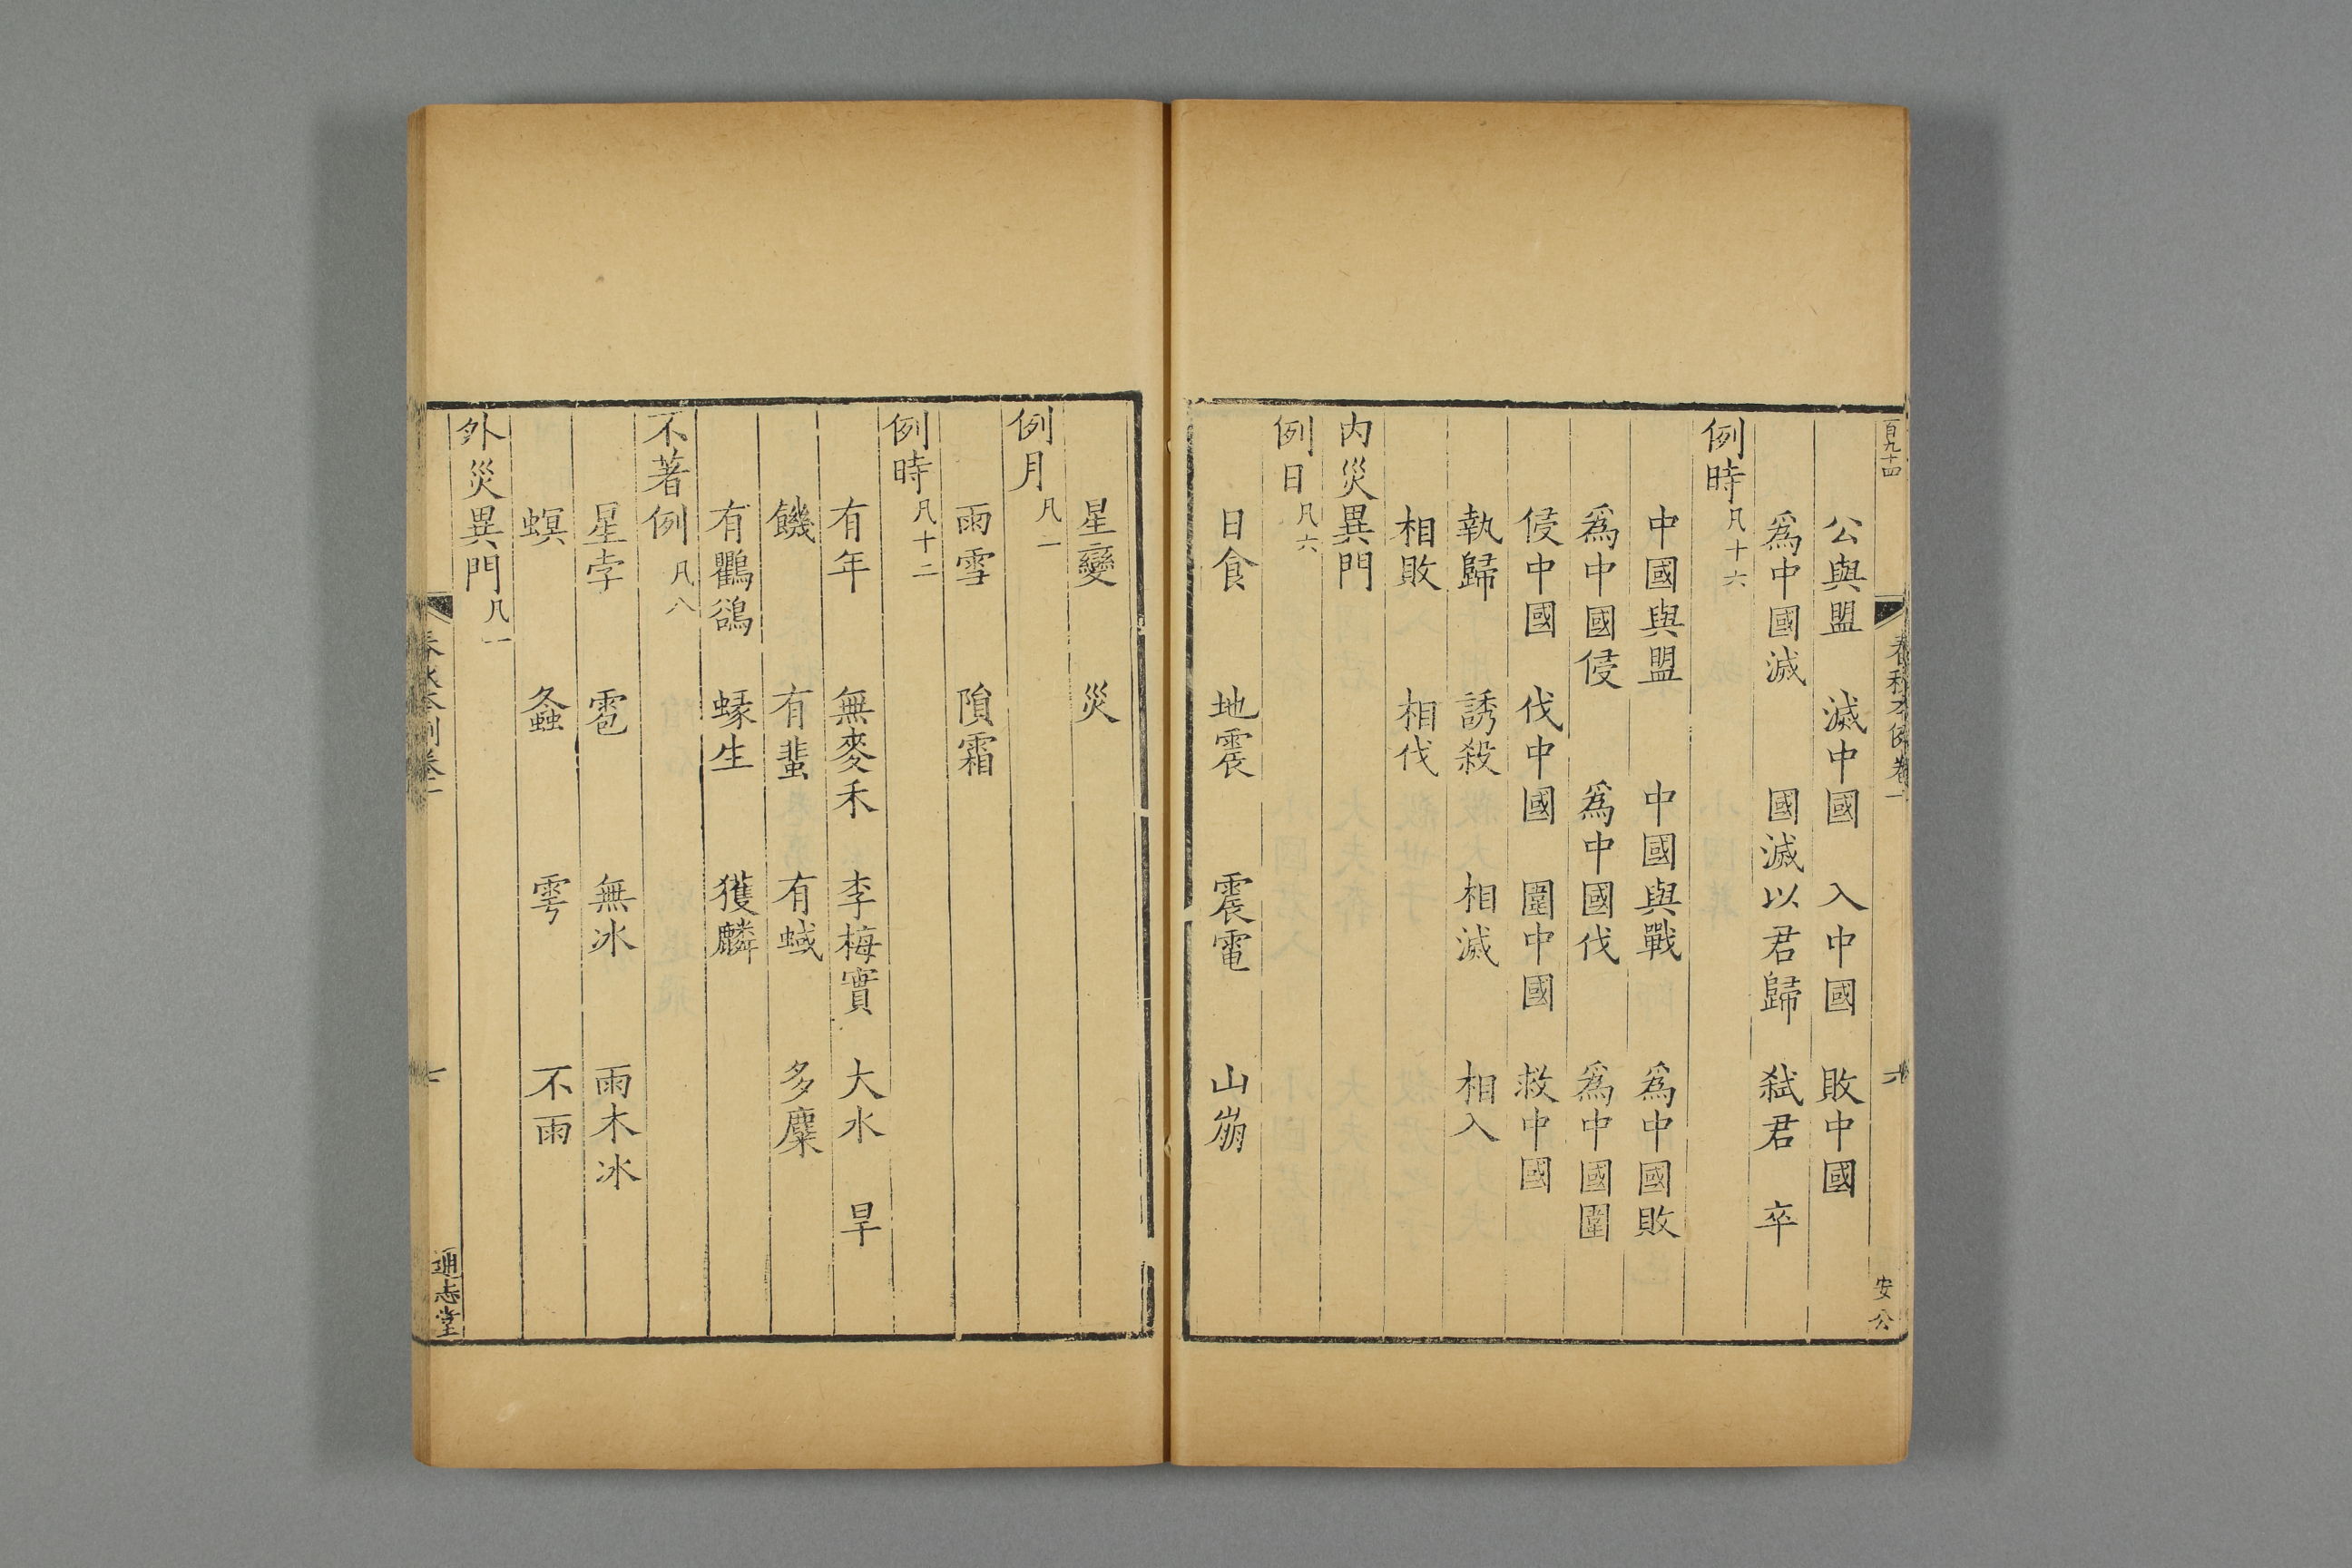 百九十四
春秋本例卷一
安公
公與盟 滅中國 入中國 敗中國
爲中國滅 國滅以君歸 弑君 卒
例時凡十六
中國與盟 中國與戰 爲中國敗
爲中國侵 爲中國伐 爲中國圍
侵中國 伐中國 圍中國 救中國
執歸 誘殺 相滅 相入
相敗 相伐
內災異門
例日凡六
日食 地震 震電 山崩
星變 災
例月凡二
雨雪 隕霜
例時凡十二
有年 無麥禾 李梅實 大水 旱
饑 有蜚 有蜮 多麋
有鸜鵒 蝝生 獲麟
不著例凡八
星孛 雹 無冰 雨木冰
螟 螽 雩 不雨
外災異門凡一
春秋本例卷一
七
通志堂